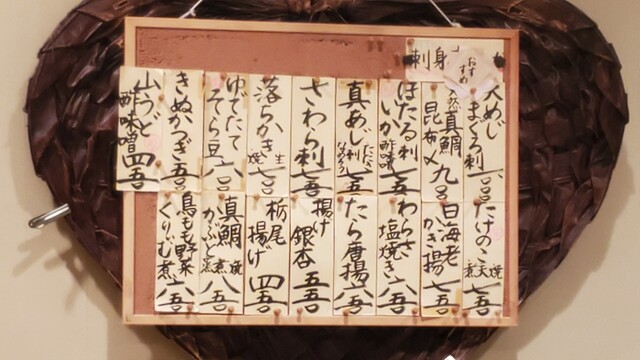 刺身
おすすめ
まぐろ刺
天然真鯛昆布〆 九〇
ほたる刺
いか 酢味噌 七五
真あじ 刺 たたき なめろう 七五
さわら刺 七五
落ちがき 生 焼 七〇
ゆでたてそら豆 六〇
きぬかつぎ 五〇
山うど酢味噌 四五
たけのこ 焼 天 煮 七五
白海老かき揚 七五
わらさ塩焼き 八五
たら唐揚 六五
揚げ銀杏 五五
栃尾揚げ 四五
真鯛かぶと 焼 煮 八五
鳥もも野菜くりーむ煮 六五